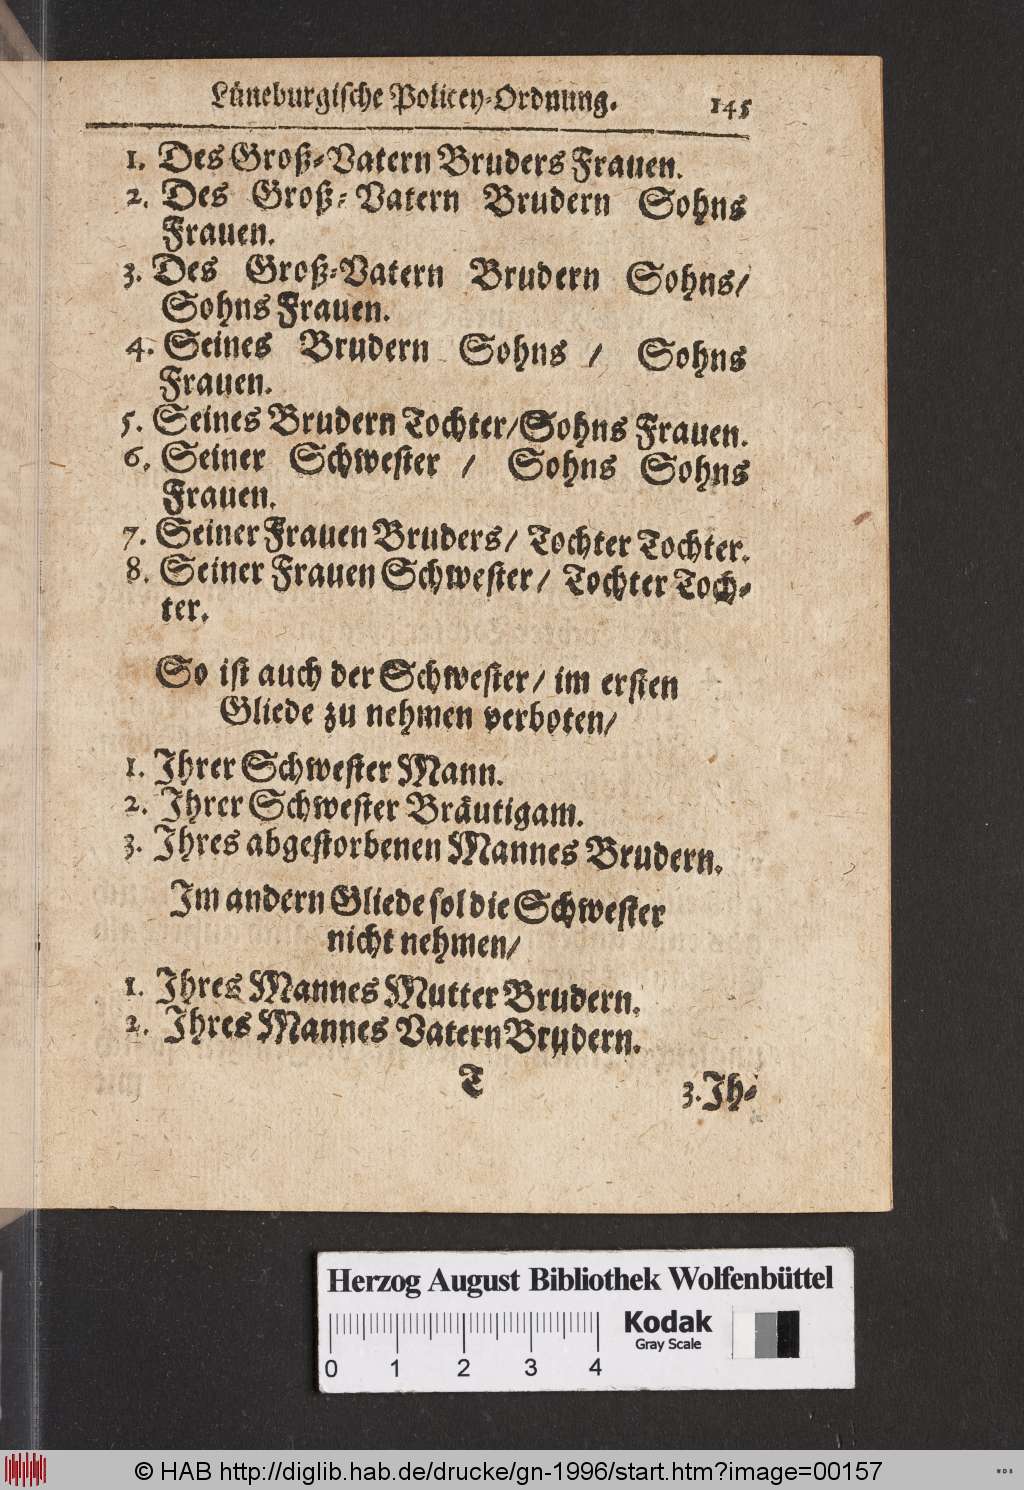 Lüneburgische Policey-Ordnung. 145
1. Des Groß-Vatern Bruders Frauen.
2. Des Groß-Vatern Brudern Sohns
Frauen.
3. Des Groß-Vatern Brudern Sohns/
Sohns Frauen.
4. Seines Brudern Sohns / Sohns
Frauen.
5. Seines Brudern Tochter/Sohns Frauen.
6. Seiner Schwester / Sohns Sohns
Frauen.
7. Seiner Frauen Bruders/ Tochter Tochter.
8. Seiner Frauen Schwester/ Tochter Toch-
ter.
So ist auch der Schwester/ im ersten
Gliede zu nehmen verboten/
1. Ihrer Schwester Mann.
2. Ihrer Schwester Bräutigam.
3. Ihres abgestorbenen Mannes Brudern.
Im andern Gliede sol die Schwester
nicht nehmen/
1. Ihres Mannes Mutter Brudern.
2. Ihres Mannes Vatern Brudern.
T 3. Ih-
Herzog August Bibliothek Wolfenbüttel
Kodak
Gray Scale
0 1 2 3 4
© HAB http://diglib.hab.de/drucke/gn-1996/start.htm?image=00157